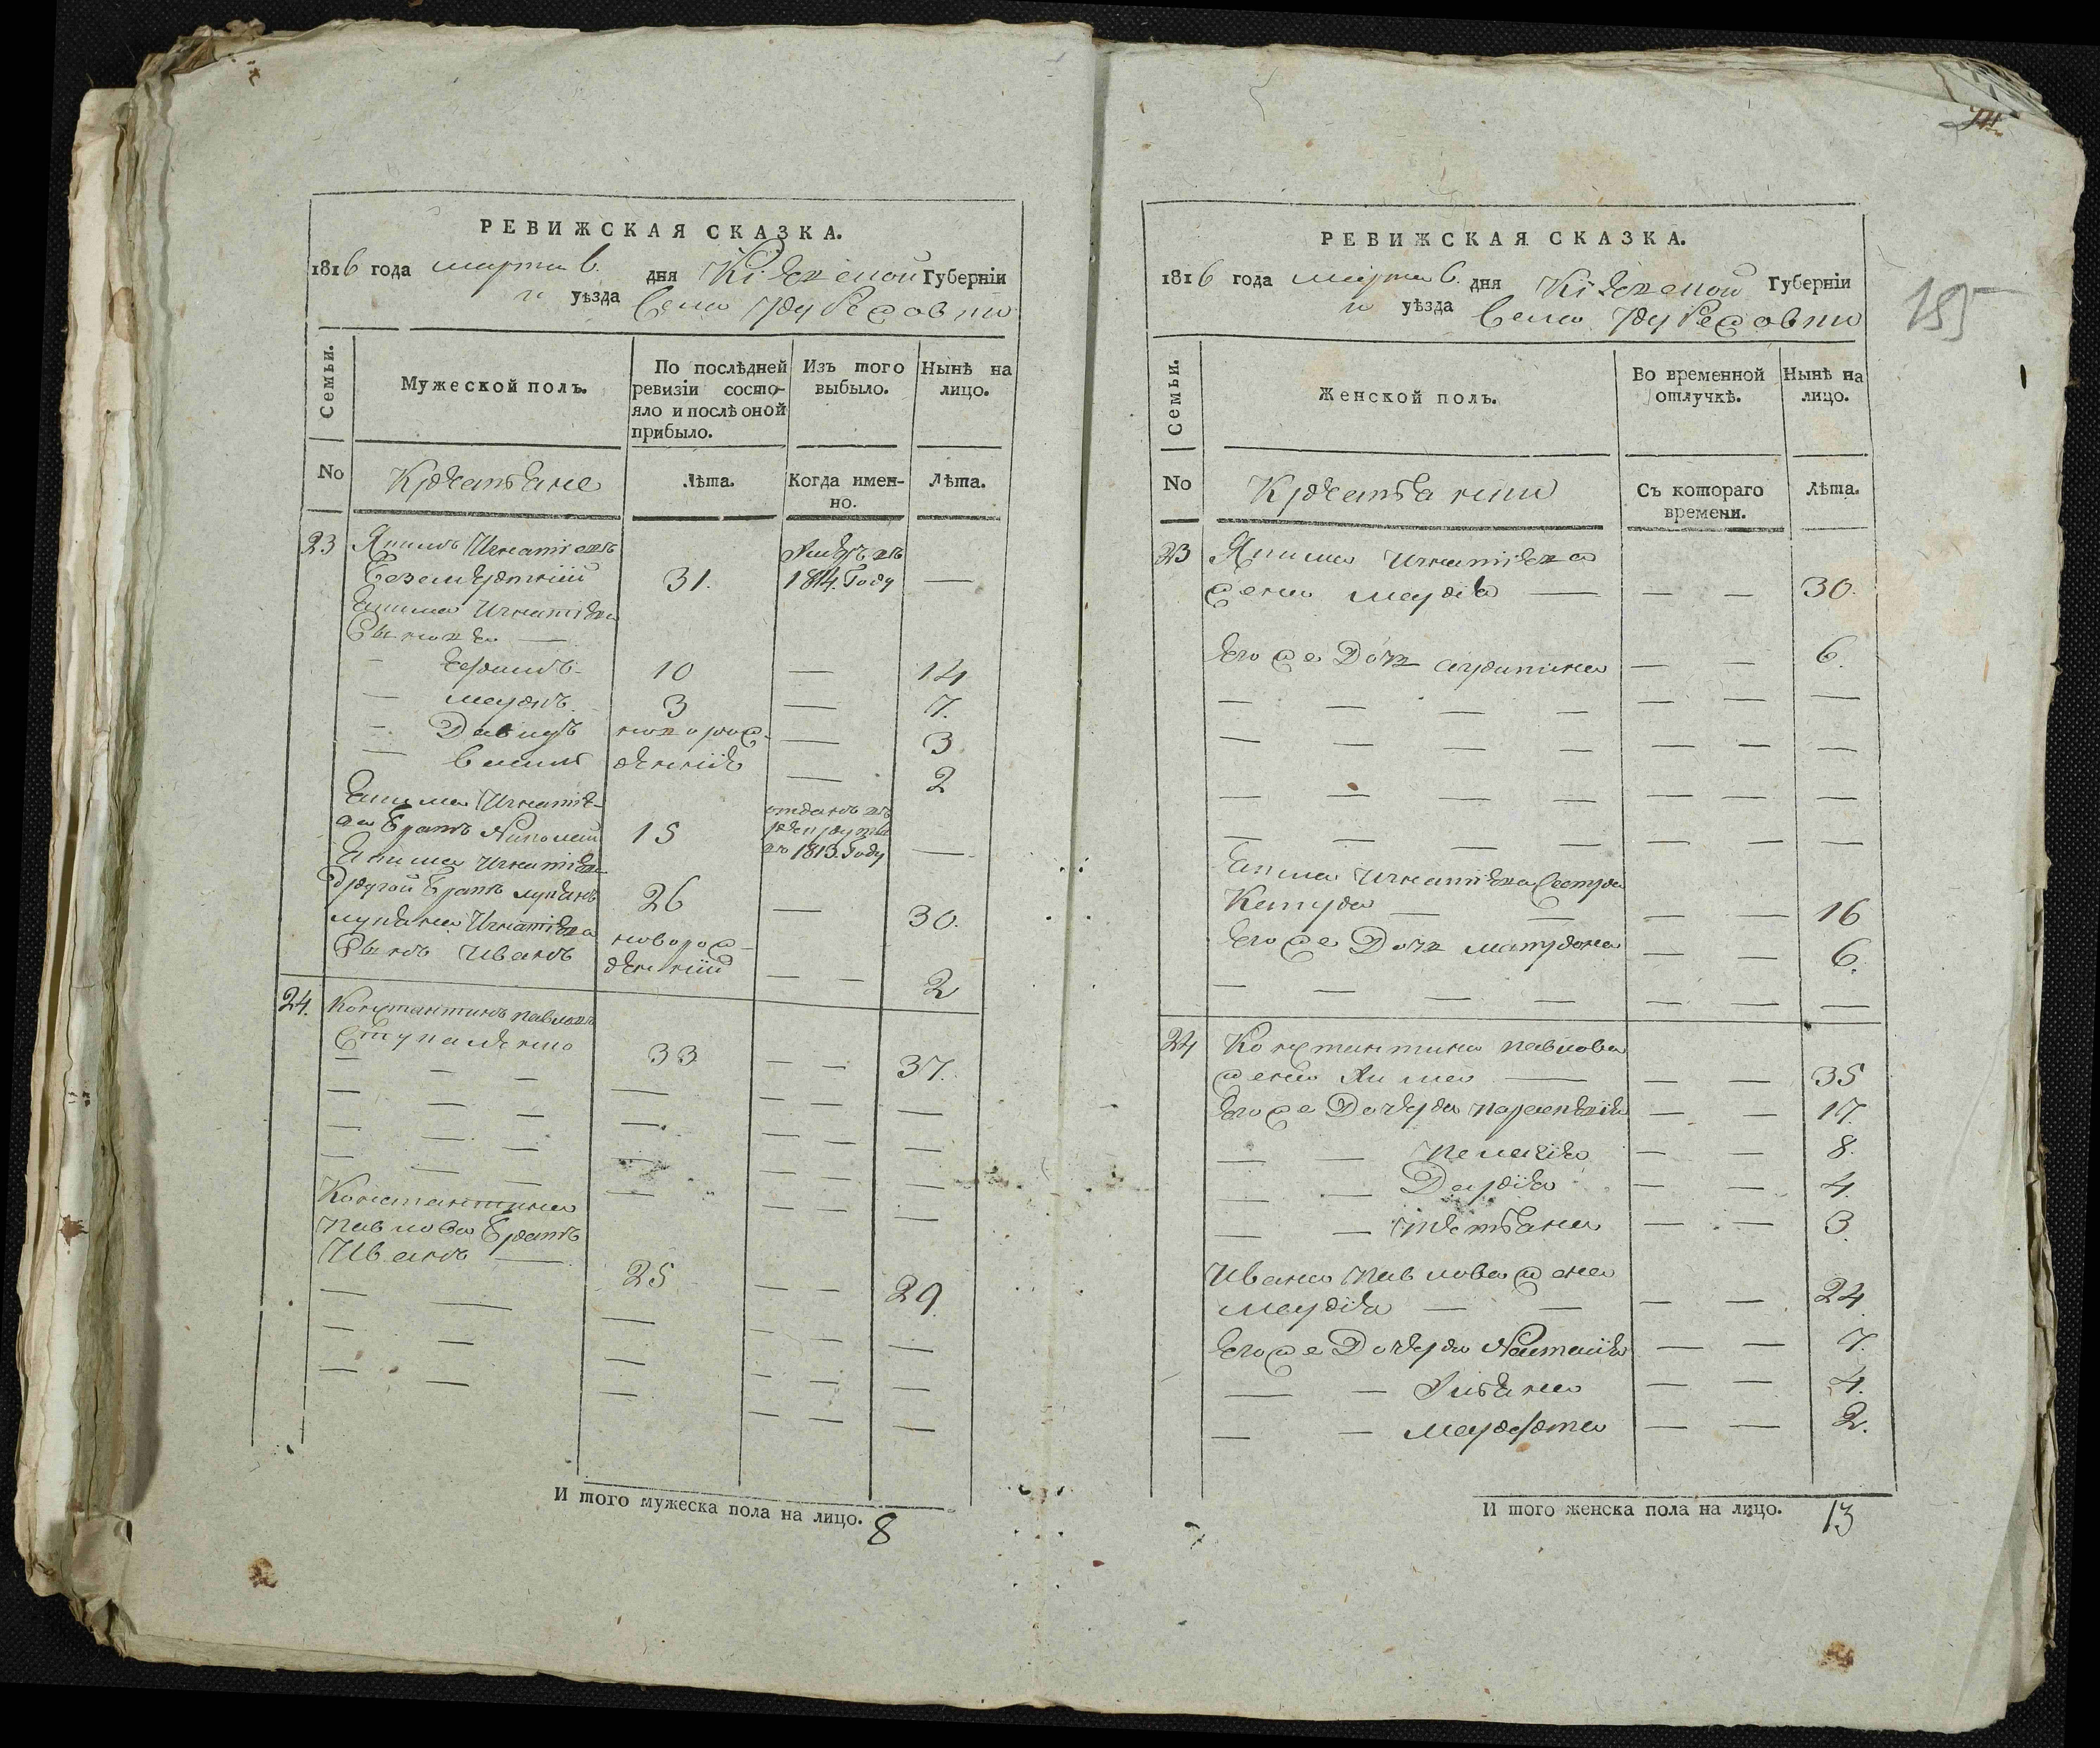 РЕВИЖСКАЯ СКАЗКА.
1816 года марта 6. дня Кіевской Губерніи
и уѣзда Села
Семьи.
Мужеской полъ.
По послѣдней ревизіи состо-
яло и послѣ оной
прибыло.
Изъ того
выбыло.
Нынѣ на
лицо.
No
Крестьяне
Лѣта.
Когда имен-
но.
Лѣта.
23 Якимъ Игнатіевъ
31. 1814. Году —
Екима Игнатіева
Сыновья —
Ефимъ 10 — 14
Марко 3 — 7.
Давидъ новорож- — 3
денніе — 2
Екима Игнатіе-
ва братъ Николай 15 отданъ въ
рекруты
въ 1813. Году —
Екима Игнатіева
другой братъ Лукьянъ 26 — 30.
Лукьяна Игнатіева
Сынъ Иванъ новорож-
денній — — 2
24. Константинъ Павловъ
33 — — 37.
Константина
Павлова братъ
Иванъ — 25 — — 29.
И того мужеска пола на лицо. 8
РЕВИЖСКАЯ СКАЗКА.
1816 года марта 6. дня Кіевской Губерніи
и уѣзда Села
195
Семьи.
Женской полъ.
Во временной
отлучкѣ.
Нынѣ на
лицо.
No
Крестьянки
Съ котораго
времени.
Лѣта.
23 Якима Игнатіева
жена Марія — — — 30.
Его же Дочь — — 6.
Екима Игнатіева Сестра
— — — — 16
Его же Дочь Матрона — — 6.
24 Константина Павлова
жена Химa — — — 35
Его же Дочера Параскевія — — 17.
— — Пелагія — — 8.
— — Дарія — — 4.
— — Тетьяна — — 3.
Ивана Павлова жена
Марія — — — — 24.
Его же Дочера Настасія — — 7.
— — Ульяна — — 4.
— — — — 2.
И того женска пола на лицо. 13